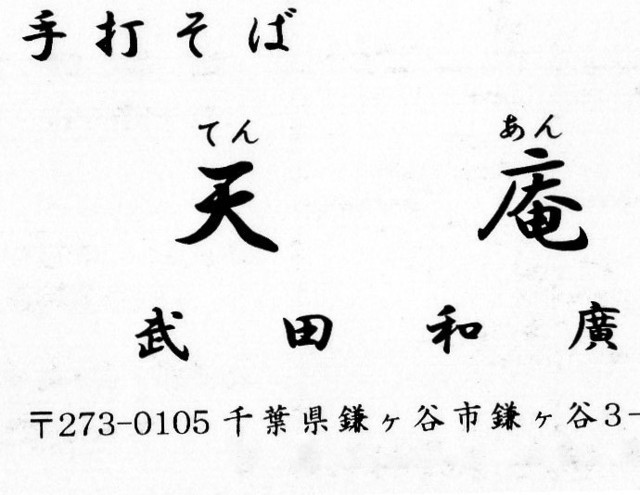 手打そば
てん あん
天 庵
武田和廣
〒273-0105 千葉県鎌ヶ谷市鎌ヶ谷3-